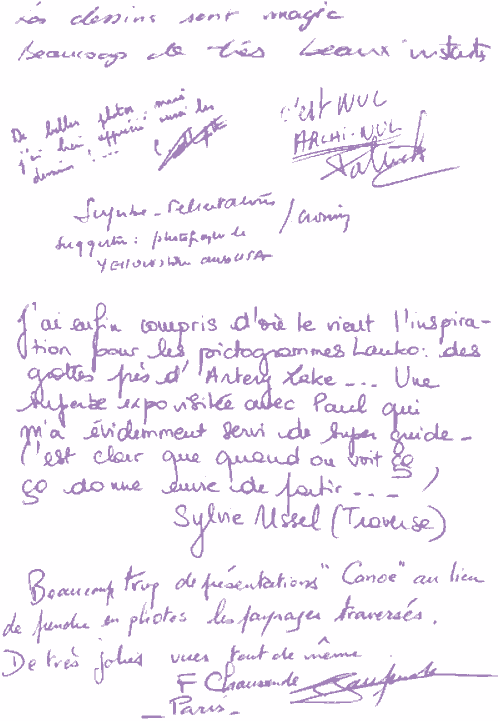 Les dessins sont magic
Beaucoup de très beaux instants
De belles photos, mais
j'ai bien apprécié aussi les
dessins !...
C'est NUL
ARCHI-NUL
Patrick
Superbe - félicitations
suggestion : photographier le
YELLOWSTONE aux USA
J'ai enfin compris d'où te vient l'inspira-
tion pour les pictogrammes Lauko : des
grottes près d'Artery Lake --- Une
superbe expo visitée avec Paul qui
m'a évidemment servi de super guide -
C'est clair que quand on voit ça
ça donne envie de partir ---
Sylvie Ussel (Traverse)
Beaucoup trop de présentations "Canoë" au lieu
de prendre en photos les paysages traversés.
De très jolies vues tout de même
F Chaussende
- Paris -